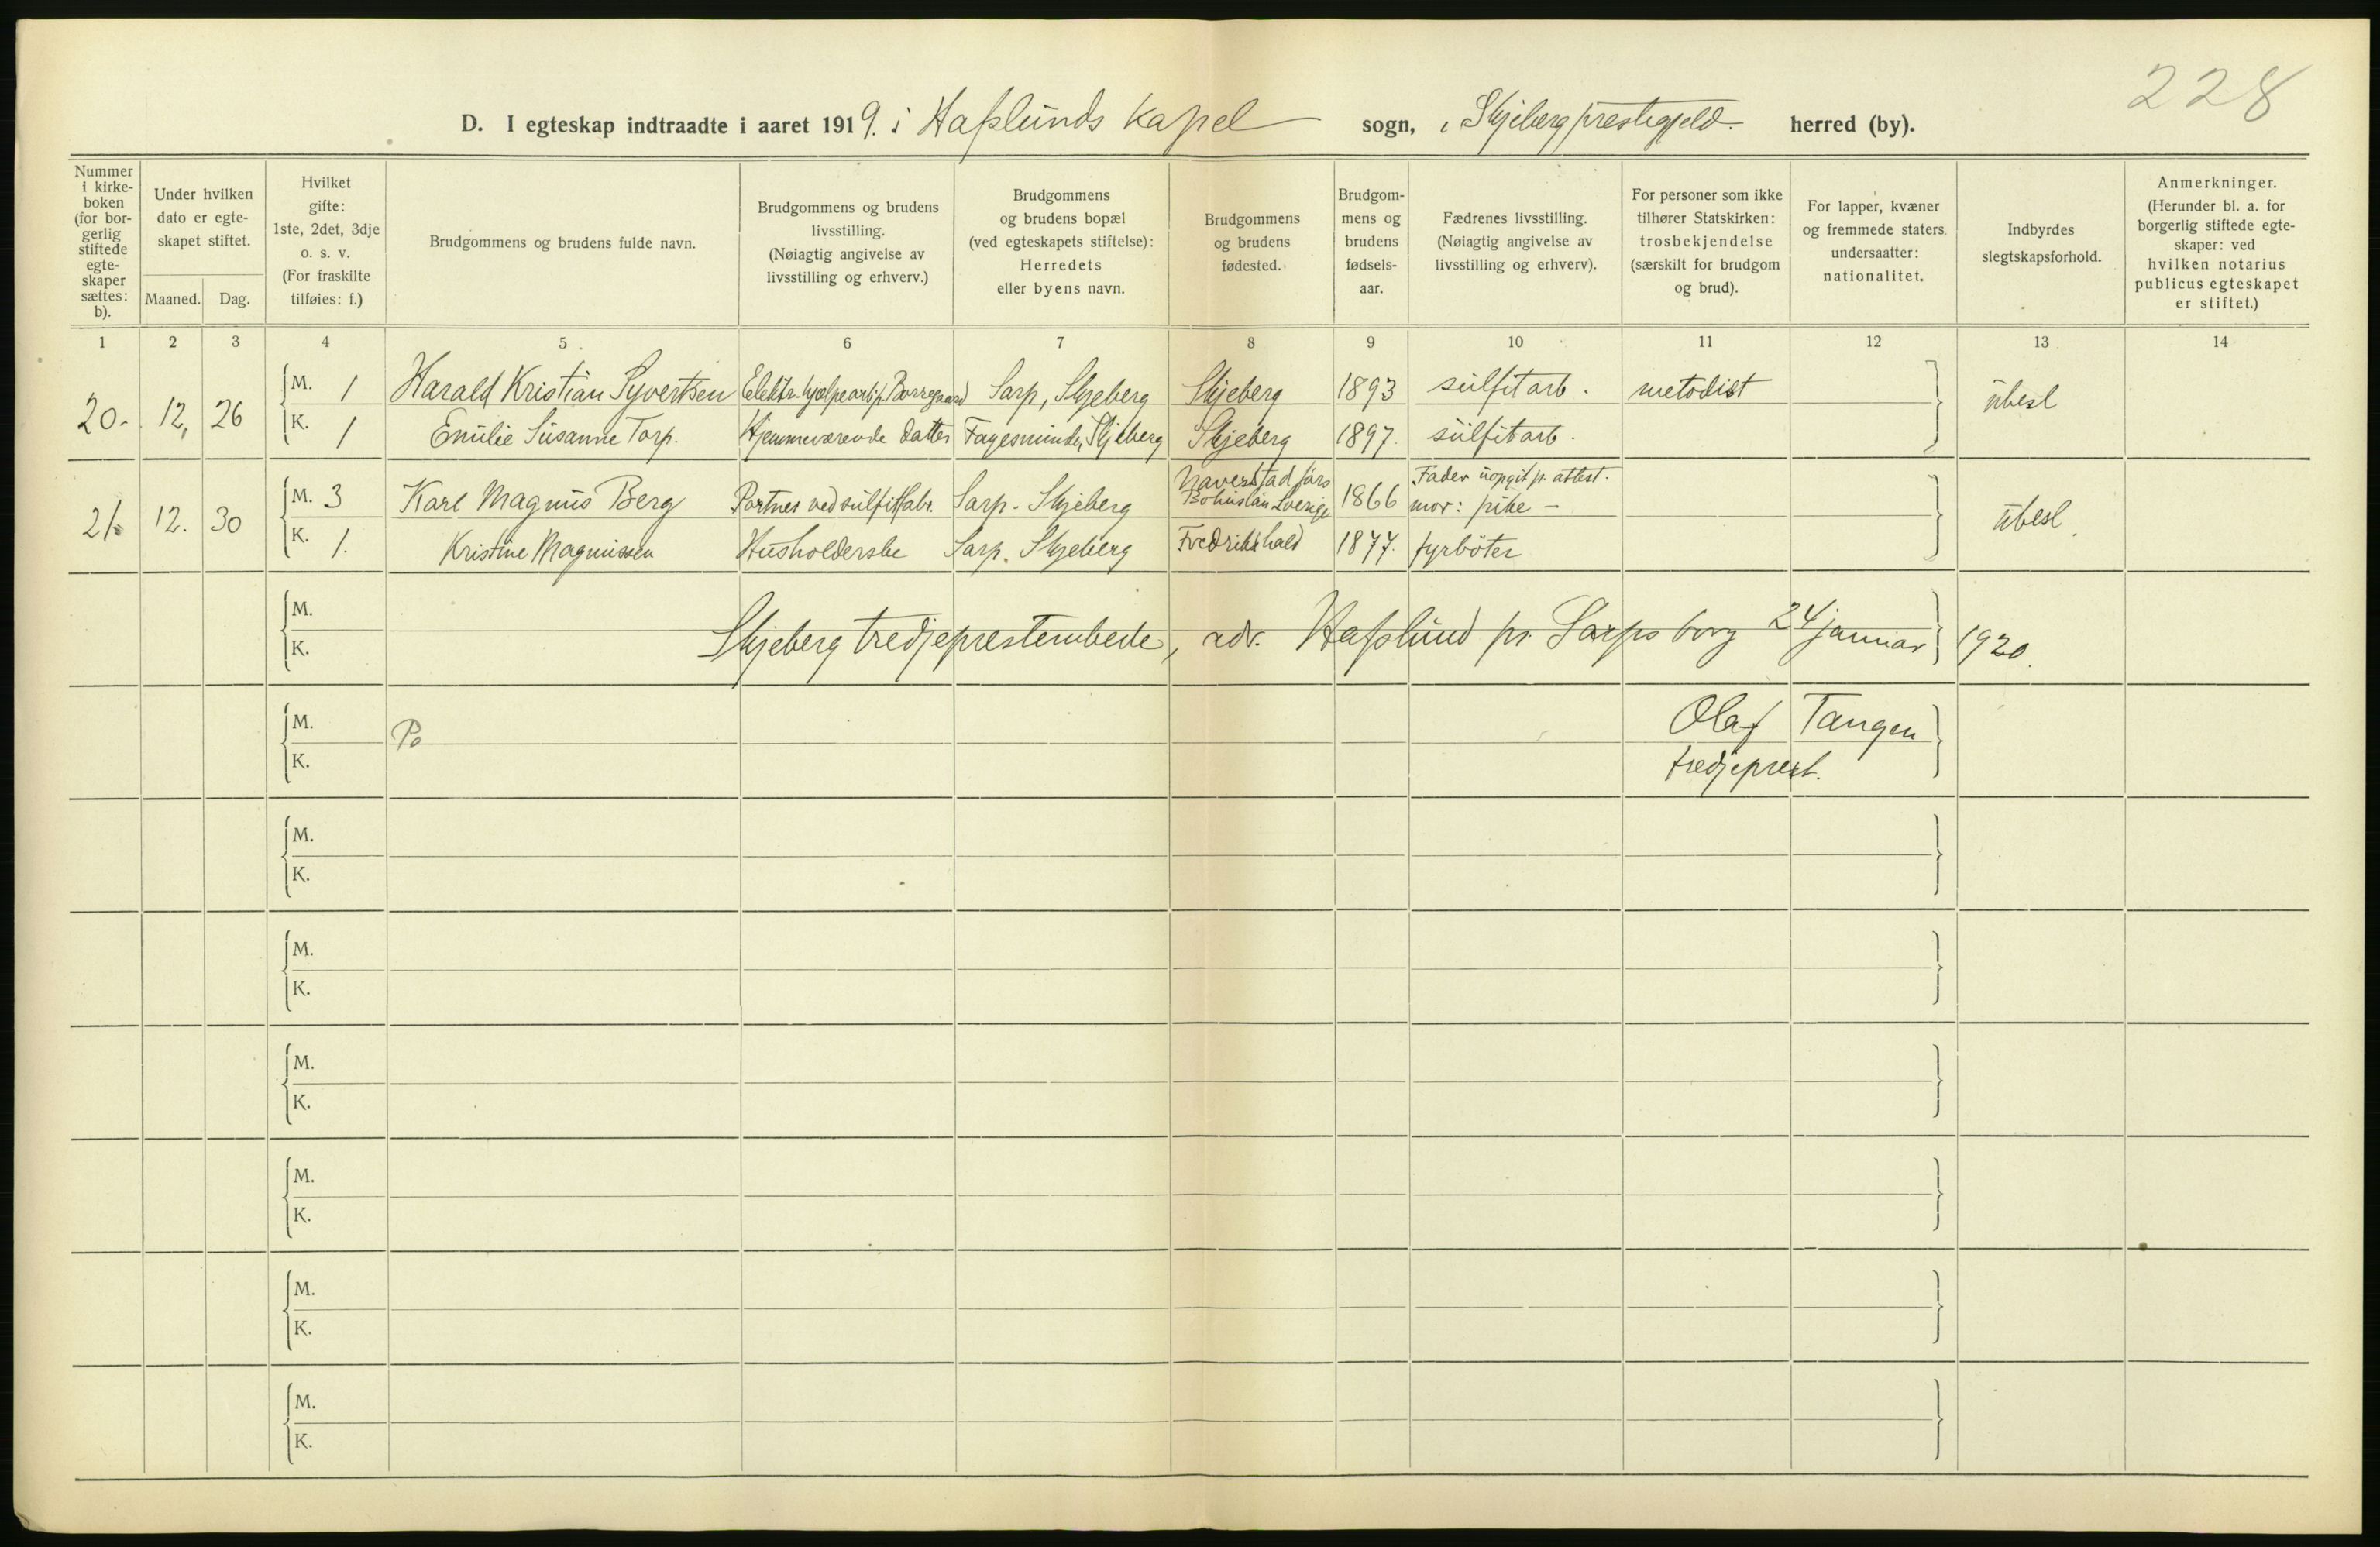 228
D. I egteskap indtraadte i aaret 1919. i Hafslunds Kapel sogn, i Skjeberg prestegjeld herred (by).
Nummer i kirke- boken (for bor- gerlig stiftede egte- skaper sættes: b).
Under hvilken dato er egte- skapet stiftet.
Maaned. Dag.
Hvilket gifte: 1ste, 2det, 3dje o. s. v. (For fraskilte tilføies: f.)
Brudgommens og brudens fulde navn.
Brudgommens og brudens livsstilling. (Nøiagtig angivelse av livsstilling og erhverv.)
Brudgommens og brudens bopæl (ved egteskapets stiftelse): Herredets eller byens navn.
Brudgommens og brudens fødested.
Brudgom- mens og brudens fødsels- aar.
Fædrenes livsstilling. (Nøiagtig angivelse av livsstilling og erhverv).
For personer som ikke tilhører Statskirken: trosbekjendelse (særskilt for brudgom og brud).
For lapper, kvæner og fremmede staters undersaatter: nationalitet.
Indbyrdes slegtskapsforhold.
Anmerkninger. (Herunder bl. a. for borgerlig stiftede egte- skaper: ved hvilken notarius publicus egteskapet er stiftet.)
1 2 3 4 5 6 7 8 9 10 11 12 13 14
20. 12, 26 M. 1 Harald Kristian Syvertsen Elektr. hjælpearb. p. Borregaard Sarp, Skjeberg Skjeberg 1893 sulfitarb. metodist ubesl
K. 1 Emilie Susanne Torp. Hjemmeværende datter Skjeberg Skjeberg 1897. sulfitarb.
21. 12. 30 M. 3 Karl Magnus Berg Portner ved sulfitfabr. Sarp - Skjeberg Naverstad förs Bohuslän Sverige 1866 Fader uopgit p. attest. mor: pike - ubesl.
K. 1. Kristine Magnussen Husholderske Sarp. Skjeberg Fredrikshald 1877. fyrböter
M.
K.
Skjeberg tredjeprestembede, adr. Hafslund pr. Sarpsborg 24 januar 1920.
M. Po Olaf Tangen
K. tredjeprest.
M.
K.
M.
K.
M.
K.
M.
K.
M.
K.
M.
K.